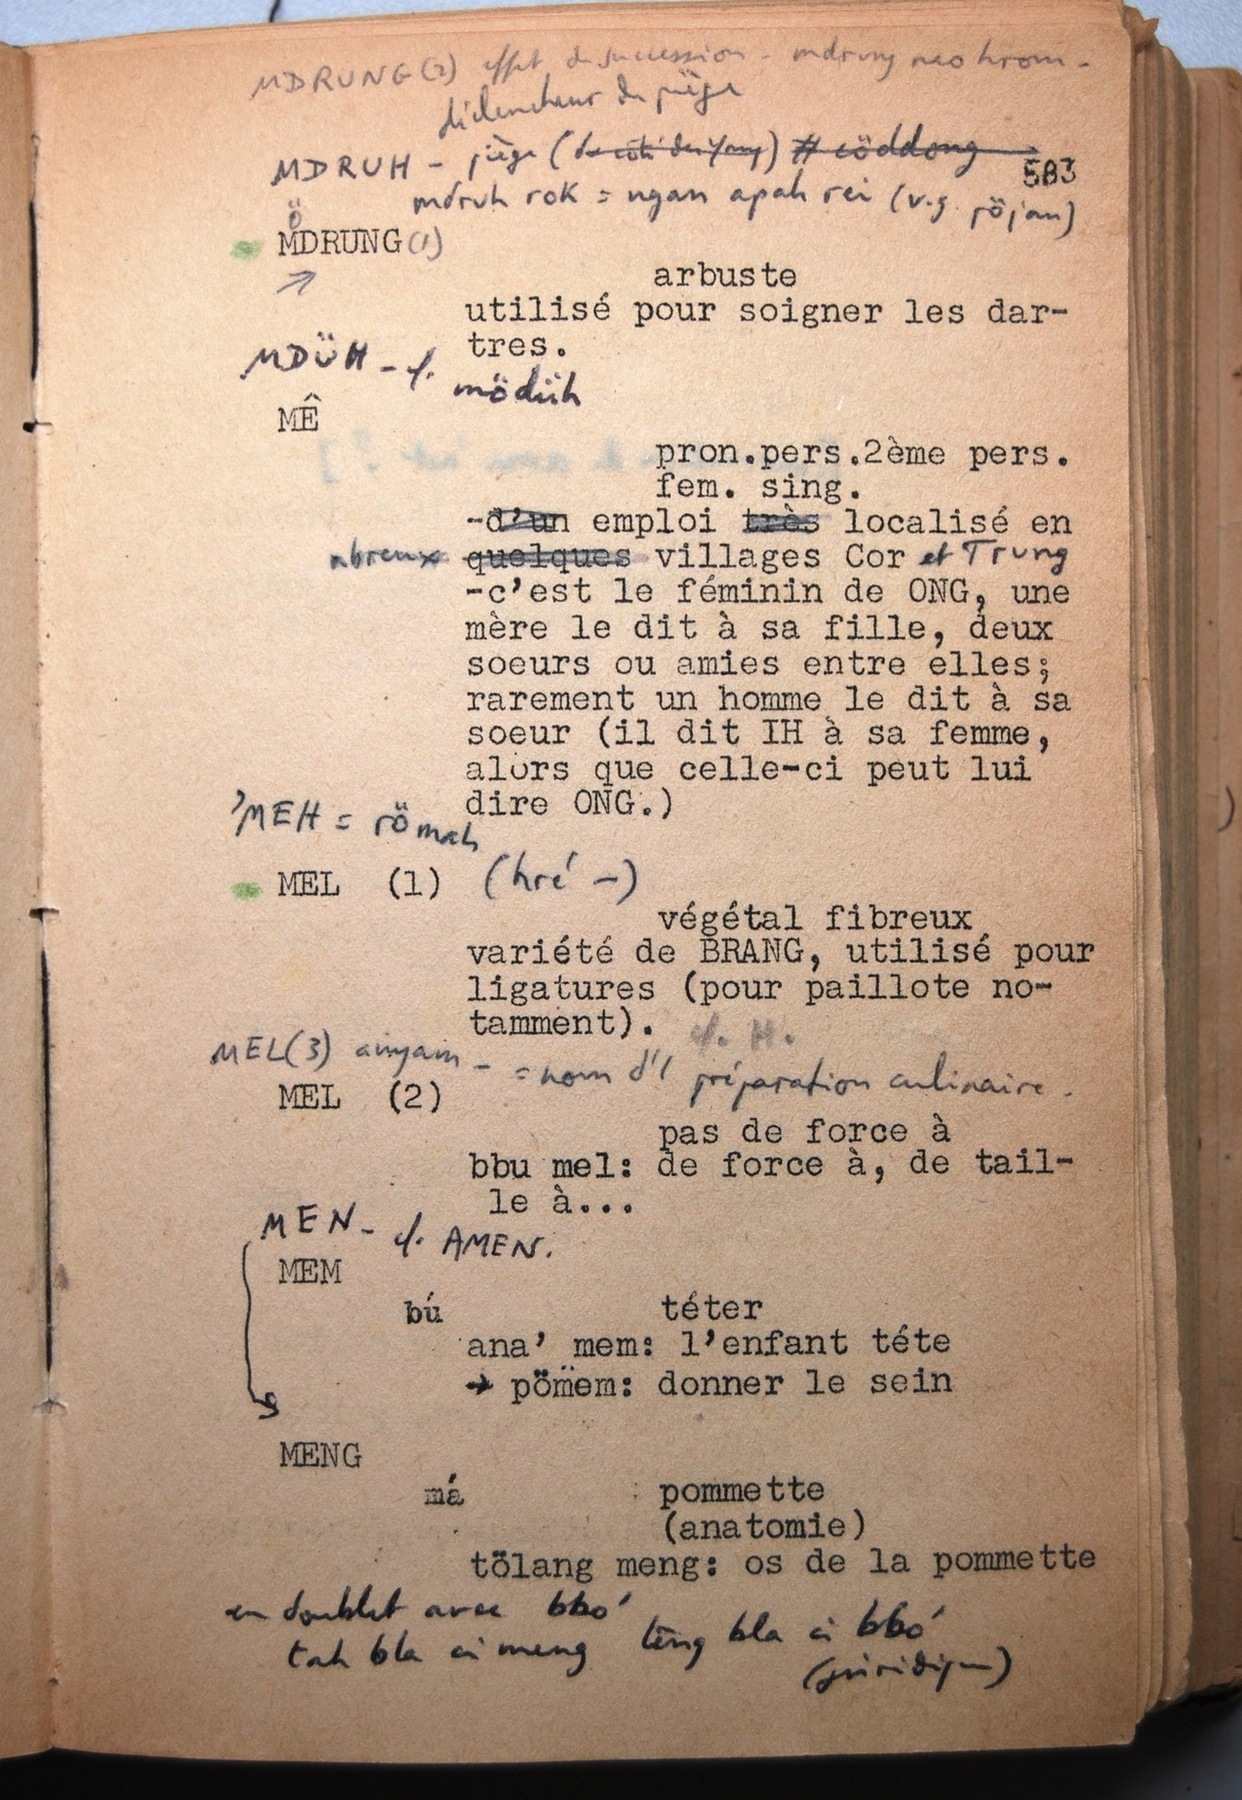 MDRUNG (2) effet de succession - mdrung nao hrom -
déclencheur du piège
MDRUH - piège (de côté des Yang) # cöddong
583
mdruh rok = ngan apah rei (v.g. röjan)
ö
MDRUNG (1)
arbuste
utilisé pour soigner les dar-
tres.
MDÜH - cf. mödüh
MÊ
pron.pers.2ème pers.
fem. sing.
-d'un emploi très localisé en
nbreux quelques villages Cor et Trung
-c'est le féminin de ONG, une
mère le dit à sa fille, deux
soeurs ou amies entre elles;
rarement un homme le dit à sa
soeur (il dit IH à sa femme,
alors que celle-ci peut lui
dire ONG.)
'MEH = römah
MEL (1) (hré -)
végétal fibreux
variété de BRANG, utilisé pour
ligatures (pour paillote no-
tamment). cf. H.
MEL (3) anyam - = nom d'1 préparation culinaire.
MEL (2)
pas de force à
bbu mel: de force à, de tail-
le à...
MEN - cf. AMEN.
MEM
bú téter
ana' mem: l'enfant téte
→ pömem: donner le sein
MENG
má pommette
(anatomie)
tölang meng: os de la pommette
en doublet avec bbó
tah bla ci meng têng bla ci bbó
(juridique)